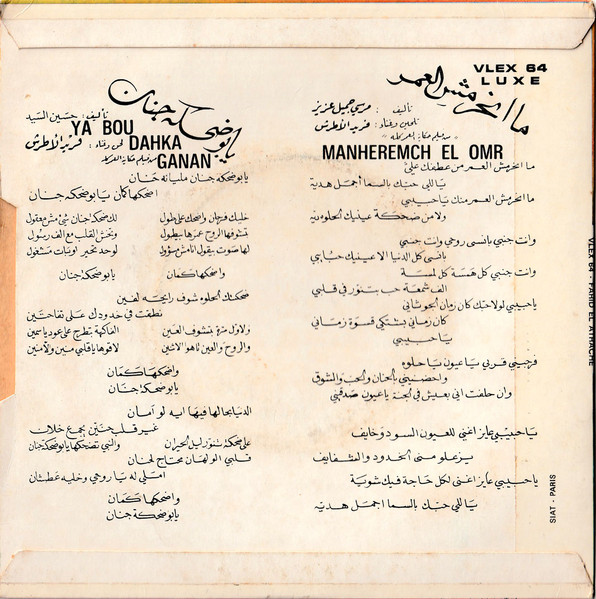 VLEX 64
LUXE
ما انحرمش العمر
تأليف: مرسي جميل عزيز
تلحين وغناء: فريد الأطرش
MANHEREMCH EL OMR
ما انحرمش العمر من عطفك علي
ياللي حبك بالسما أجمل هدية
ما انحرمش العمر منك يا حبيبي
ولا من ضحكة عينيك الحلوه ليه
وانت جنبي بانسى روحي وانت جنبي
بانسى كل الدنيا الا عينيك حبايبي
وانت جنبي كل همسة كل لمسة
الف شمعة حب بتنور في قلبي
يا حبيبي لولا حنك كان زمان
كان زماني بشتكي قسوة زماني
يا حبيبي
قربني يا عيون يا حلوه
واحضنيني بالحنان والحب والشوق
وان حلفت اني بعيش في الجنة يا عيون صدقني
يا حبيبي عايز اغني للعيون السود وخايف
يزعلو مني الخدود والشفايف
يا حبيبي عايز اغني لكل حاجة فيك شوية
ياللي حبك بالسما اجمل هدية
يابو ضحكة جنان
تأليف: حسين السيد
لحن وغناء: فريد الأطرش
YA BOU
DAHKA
GANAN
يابو ضحكه جنان مليانه حنان
اضحكها كمان يابو ضحكه جنان
خليك فرحان واضحك على طول
لك ضحكه جنان
تشوفها الروح عمرها يطول
وتخش القلب
لها صوت يقول للناس
واضحكها كمان
يابو ضحكة جنان
ضحكتك الحلوه شوف رايحه لفين
نطقت في خدودك على تفاحتين
ولاول مرة تشوف العين
الفاكهة تطرح على عود ياسمين
والروح والعين
واضحكها كمان
يابو ضحكة جنان
الدنيا جمالها فيها ايه لو أمان
غير قلب حنين يجمع خلان
على ضحكة تنور ليل الحيران
والنبي تضحكها يابو ضحكة جنان
قلبي الولهان محتاج لحنان
املى له يا روحي وخليه عطشان
واضحكها كمان
يابو ضحكة جنان
VLEX 64 - FARID EL ATRACHE
SIAT - PARIS